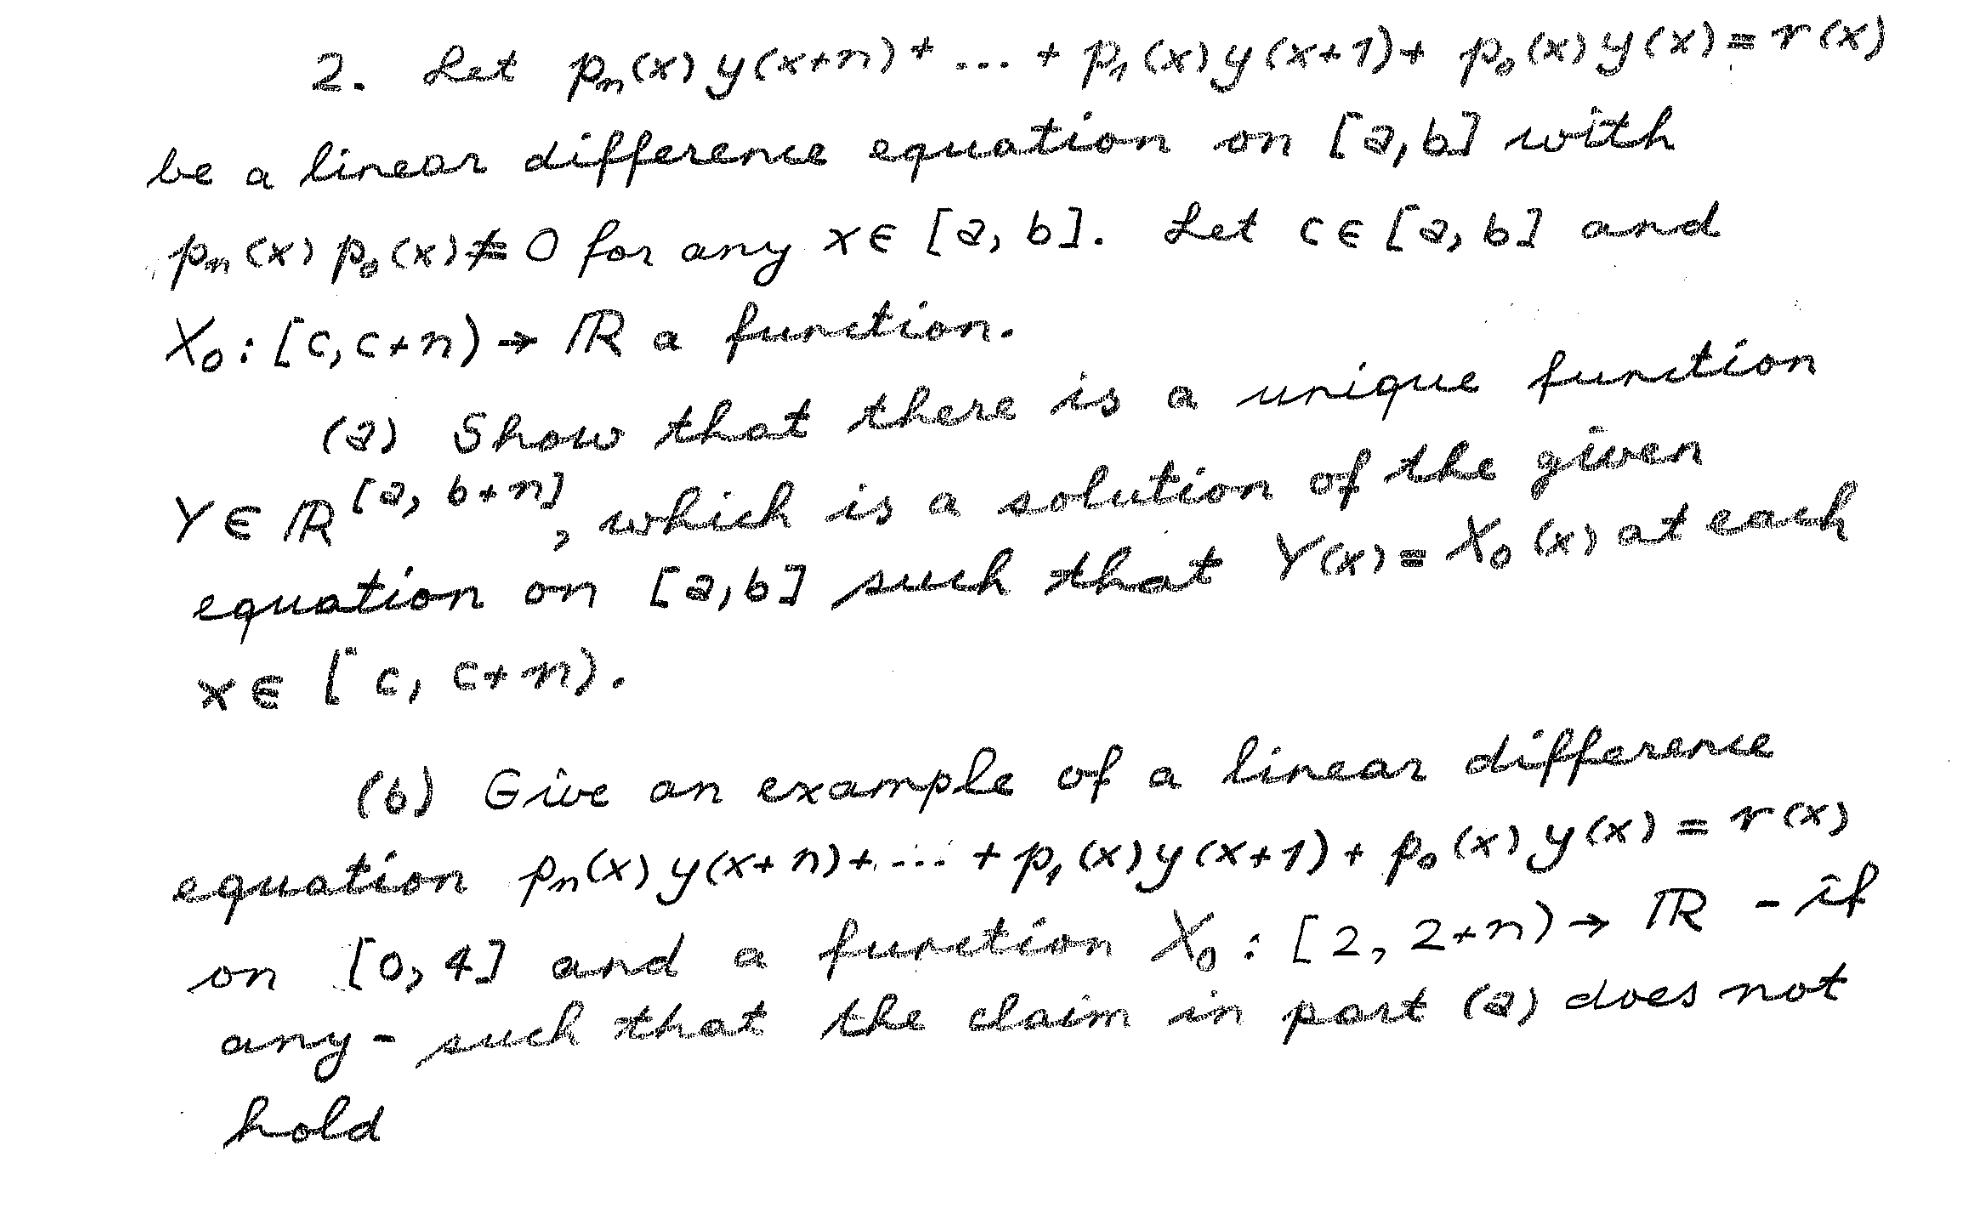 2. Let pₙ(x) y(x+n) + ... + p₁(x) y(x+1) + p₀(x) y(x) = r(x)
be a linear difference equation on [a, b] with
pₙ(x) p₀(x) ≠ 0 for any x ∈ [a, b]. Let c ∈ [a, b] and
X₀ : [c, c+n) → ℝ a function.
(a) Show that there is a unique function
Y ∈ ℝ^[a, b+n], which is a solution of the given
equation on [a, b] such that Y(x) = X₀(x) at each
x ∈ [c, c+n).
(b) Give an example of a linear difference
equation pₙ(x) y(x+n) + ... + p₁(x) y(x+1) + p₀(x) y(x) = r(x)
on [0, 4] and a function X₀ : [2, 2+n) → ℝ - if
any - such that the claim in part (a) does not
hold